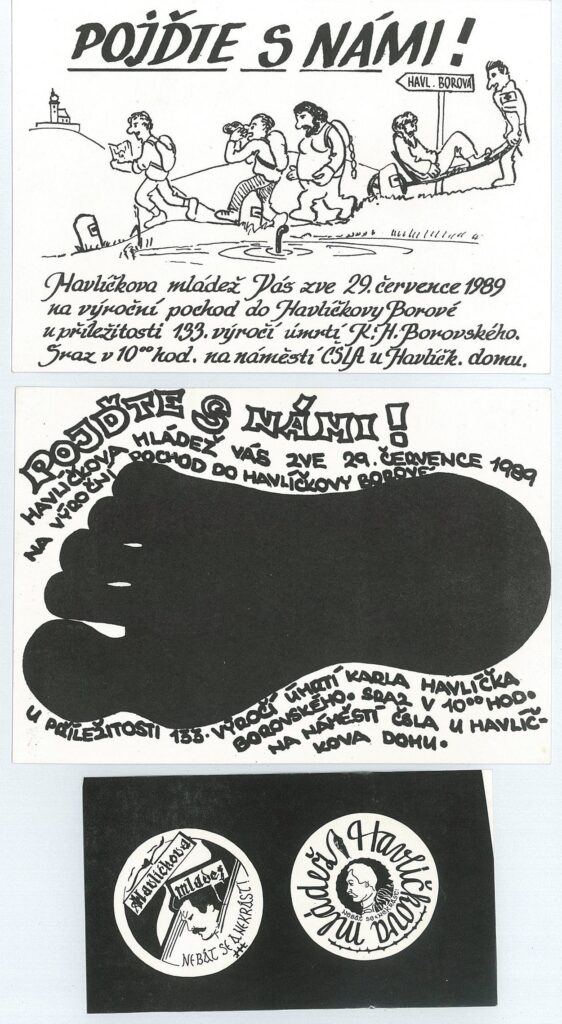 POJĎTE S NÁMI!
HAVL. BOROVÁ
Havlíčkova mládež Vás zve 29. července 1989
na výroční pochod do Havlíčkovy Borové
u příležitosti 133. výročí úmrtí K. H. Borovského.
Sraz v 10⁰⁰ hod. na náměstí ČSLA u Havlíčk. domu.
POJĎTE S NÁMI!
HAVLÍČKOVA MLÁDEŽ VÁS ZVE 29. ČERVENCE 1989
NA VÝROČNÍ POCHOD DO HAVLÍČKOVY BOROVÉ
U PŘÍLEŽITOSTI 133. VÝROČÍ ÚMRTÍ KARLA HAVLÍČKA
BOROVSKÉHO. SRAZ V 10⁰⁰ HOD.
NA NÁMĚSTÍ ČSLA U HAVLÍČ-
KOVA DOMU.
Havlíčkova
mládež
NEBÁT SE A NEKRÁST!
Havlíčkova mládež
NEBÁT SE A NEKRÁST!